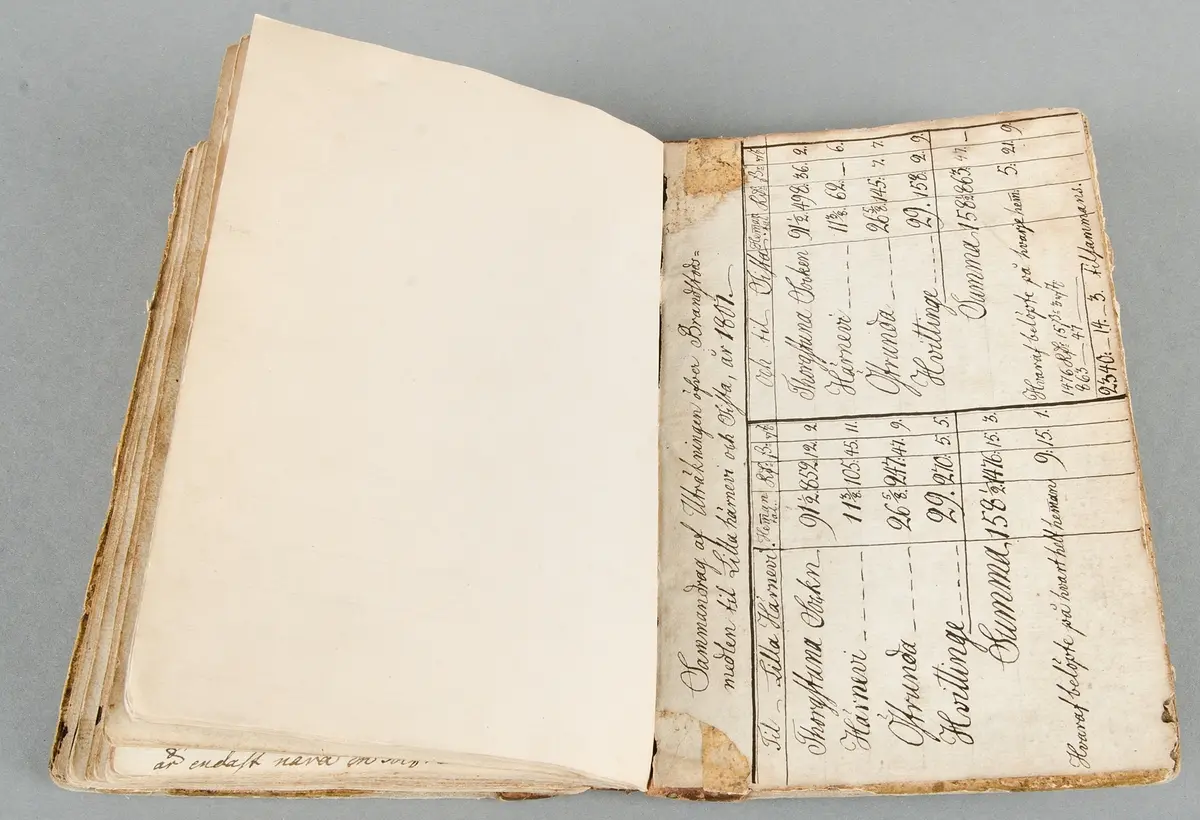 Sammandrag af Uträkningen öfver Brandstods=
medlen til Lilla härnevi och Kista, år 1801.
Til - Lilla Härnevi. Heman tal. Rd: ß: rf
Thorgstuna Sokn 91 1/2 852. 12. 2
Härnevi ---- 11 3/8. 105. 45. 11.
Öfrunda ---- 26 5/8. 247. 47. 9.
Hvittinge ---- 29. 270. 5. 5.
Summa, 158 1/2 1476. 15. 3.
Hvaraf belöpte på hvart helt heman 9. 15. 1.
Och til Kista Heman tal Rd: ß: rf
Thorgstuna Soken 91 1/2 498. 36. 2.
Härnevi ---- 11 3/8. 62. — 6.
Öfrunda ---- 26 5/8. 145. 7. 7.
Hvittinge ---- 29. 158. 2. 9.
Summa, 158 1/2 863. 47. —
Hvaraf belöpte på hvarje hem. 5. 21. 9.
1476 Rd: 15 ß: 3 rf
863 — 47
2340: 14. 3. tilsammans.
är endast nära en